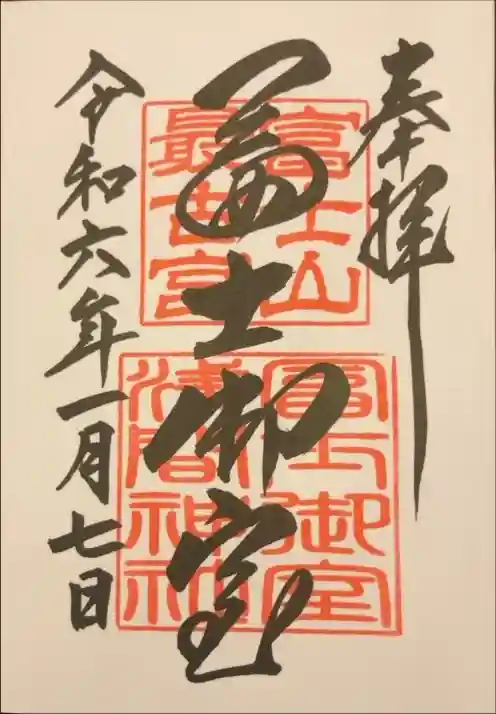 奉拝
富士山
最古宮
冨士御室
富士御室
浅間神社
令和六年一月七日